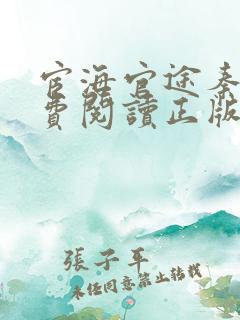 官海官途秦
費閱讀正版
張子平
未經同意禁止轉載